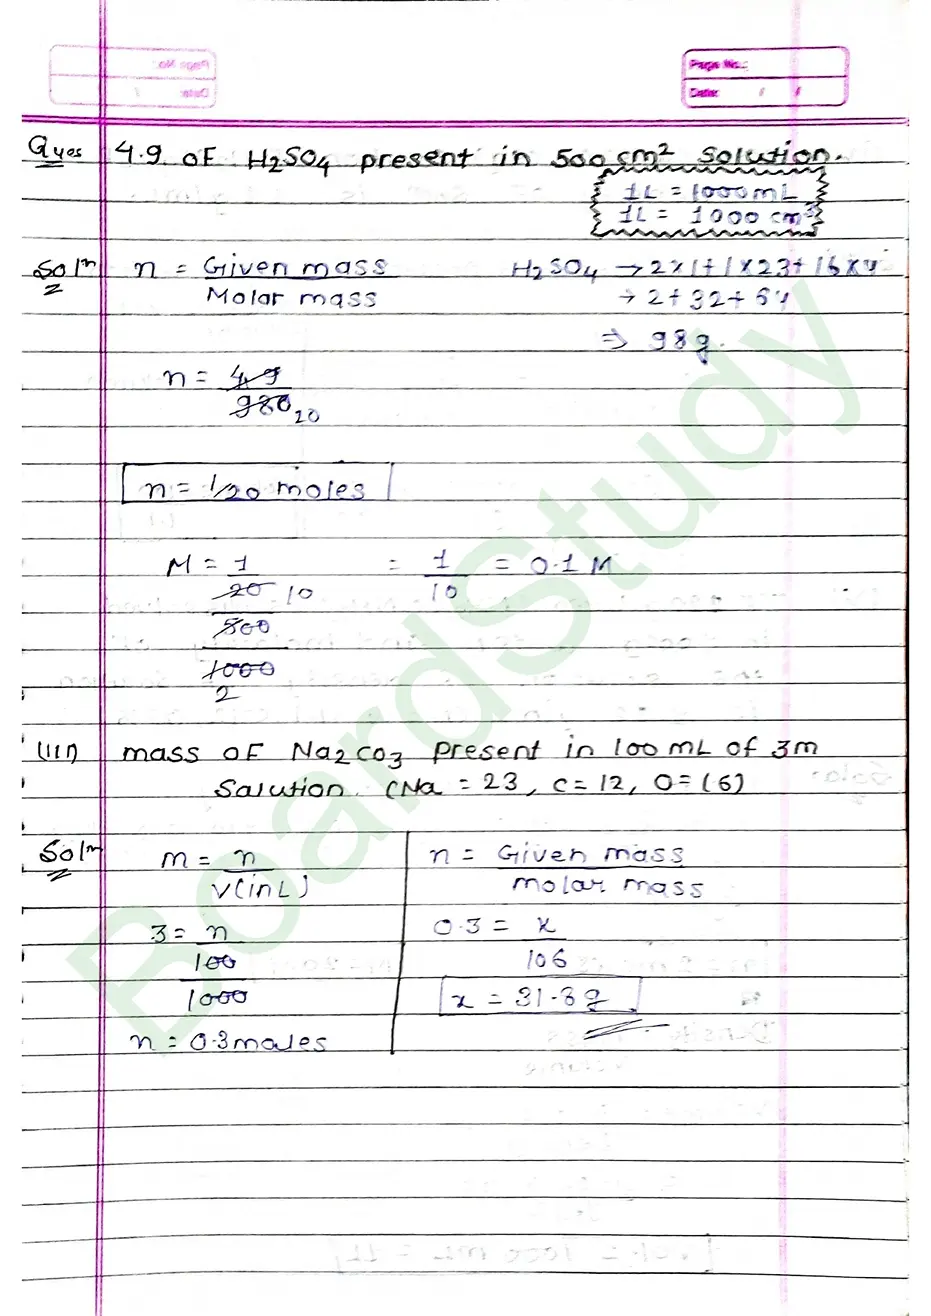 Page No.:
Date: / /
Ques 4.9 of H2SO4 present in 500 cm2 solution.
1L = 1000mL
1L = 1000 cm3
Soln n = Given mass / Molar mass
H2SO4 → 2×1+1×23+16×4
→ 2+32+64
⇒ 98g.
n = 4.9 / 980 20
n = 1/20 moles
M = 1 / 20 10 / 500 / 1000 2 = 1 / 10 = 0.1 M
(III) mass of Na2CO3 present in 100 mL of 3m
Salution. (Na = 23, C = 12, O = 16)
Soln m = n / V(inL)
3 = n / 100 / 1000
n = 0.3 moles
n = Given mass / molar mass
0.3 = x / 106
x = 31.8g
BoardStudy